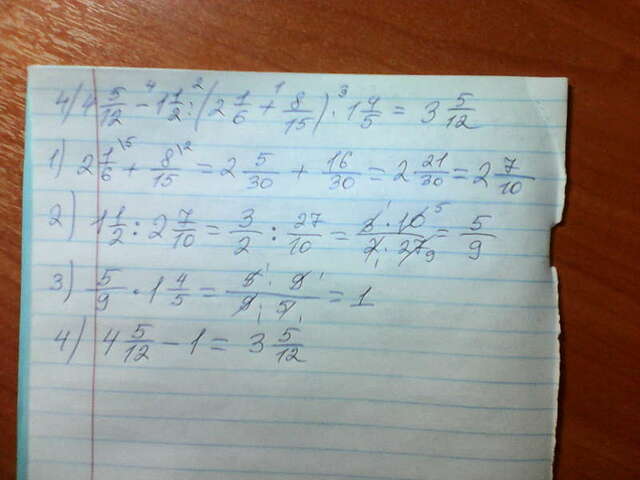 4) 4 5/12 - 1 1/2 : (2 1/6 + 8/15) · 1 4/5 = 3 5/12
1) 2 1/6 + 8/15 = 2 5/30 + 16/30 = 2 21/30 = 2 7/10
2) 1 1/2 : 2 7/10 = 3/2 : 27/10 = 3 · 10/2 · 27 = 5/9
3) 5/9 · 1 4/5 = 5 · 9/9 · 5 = 1
4) 4 5/12 - 1 = 3 5/12